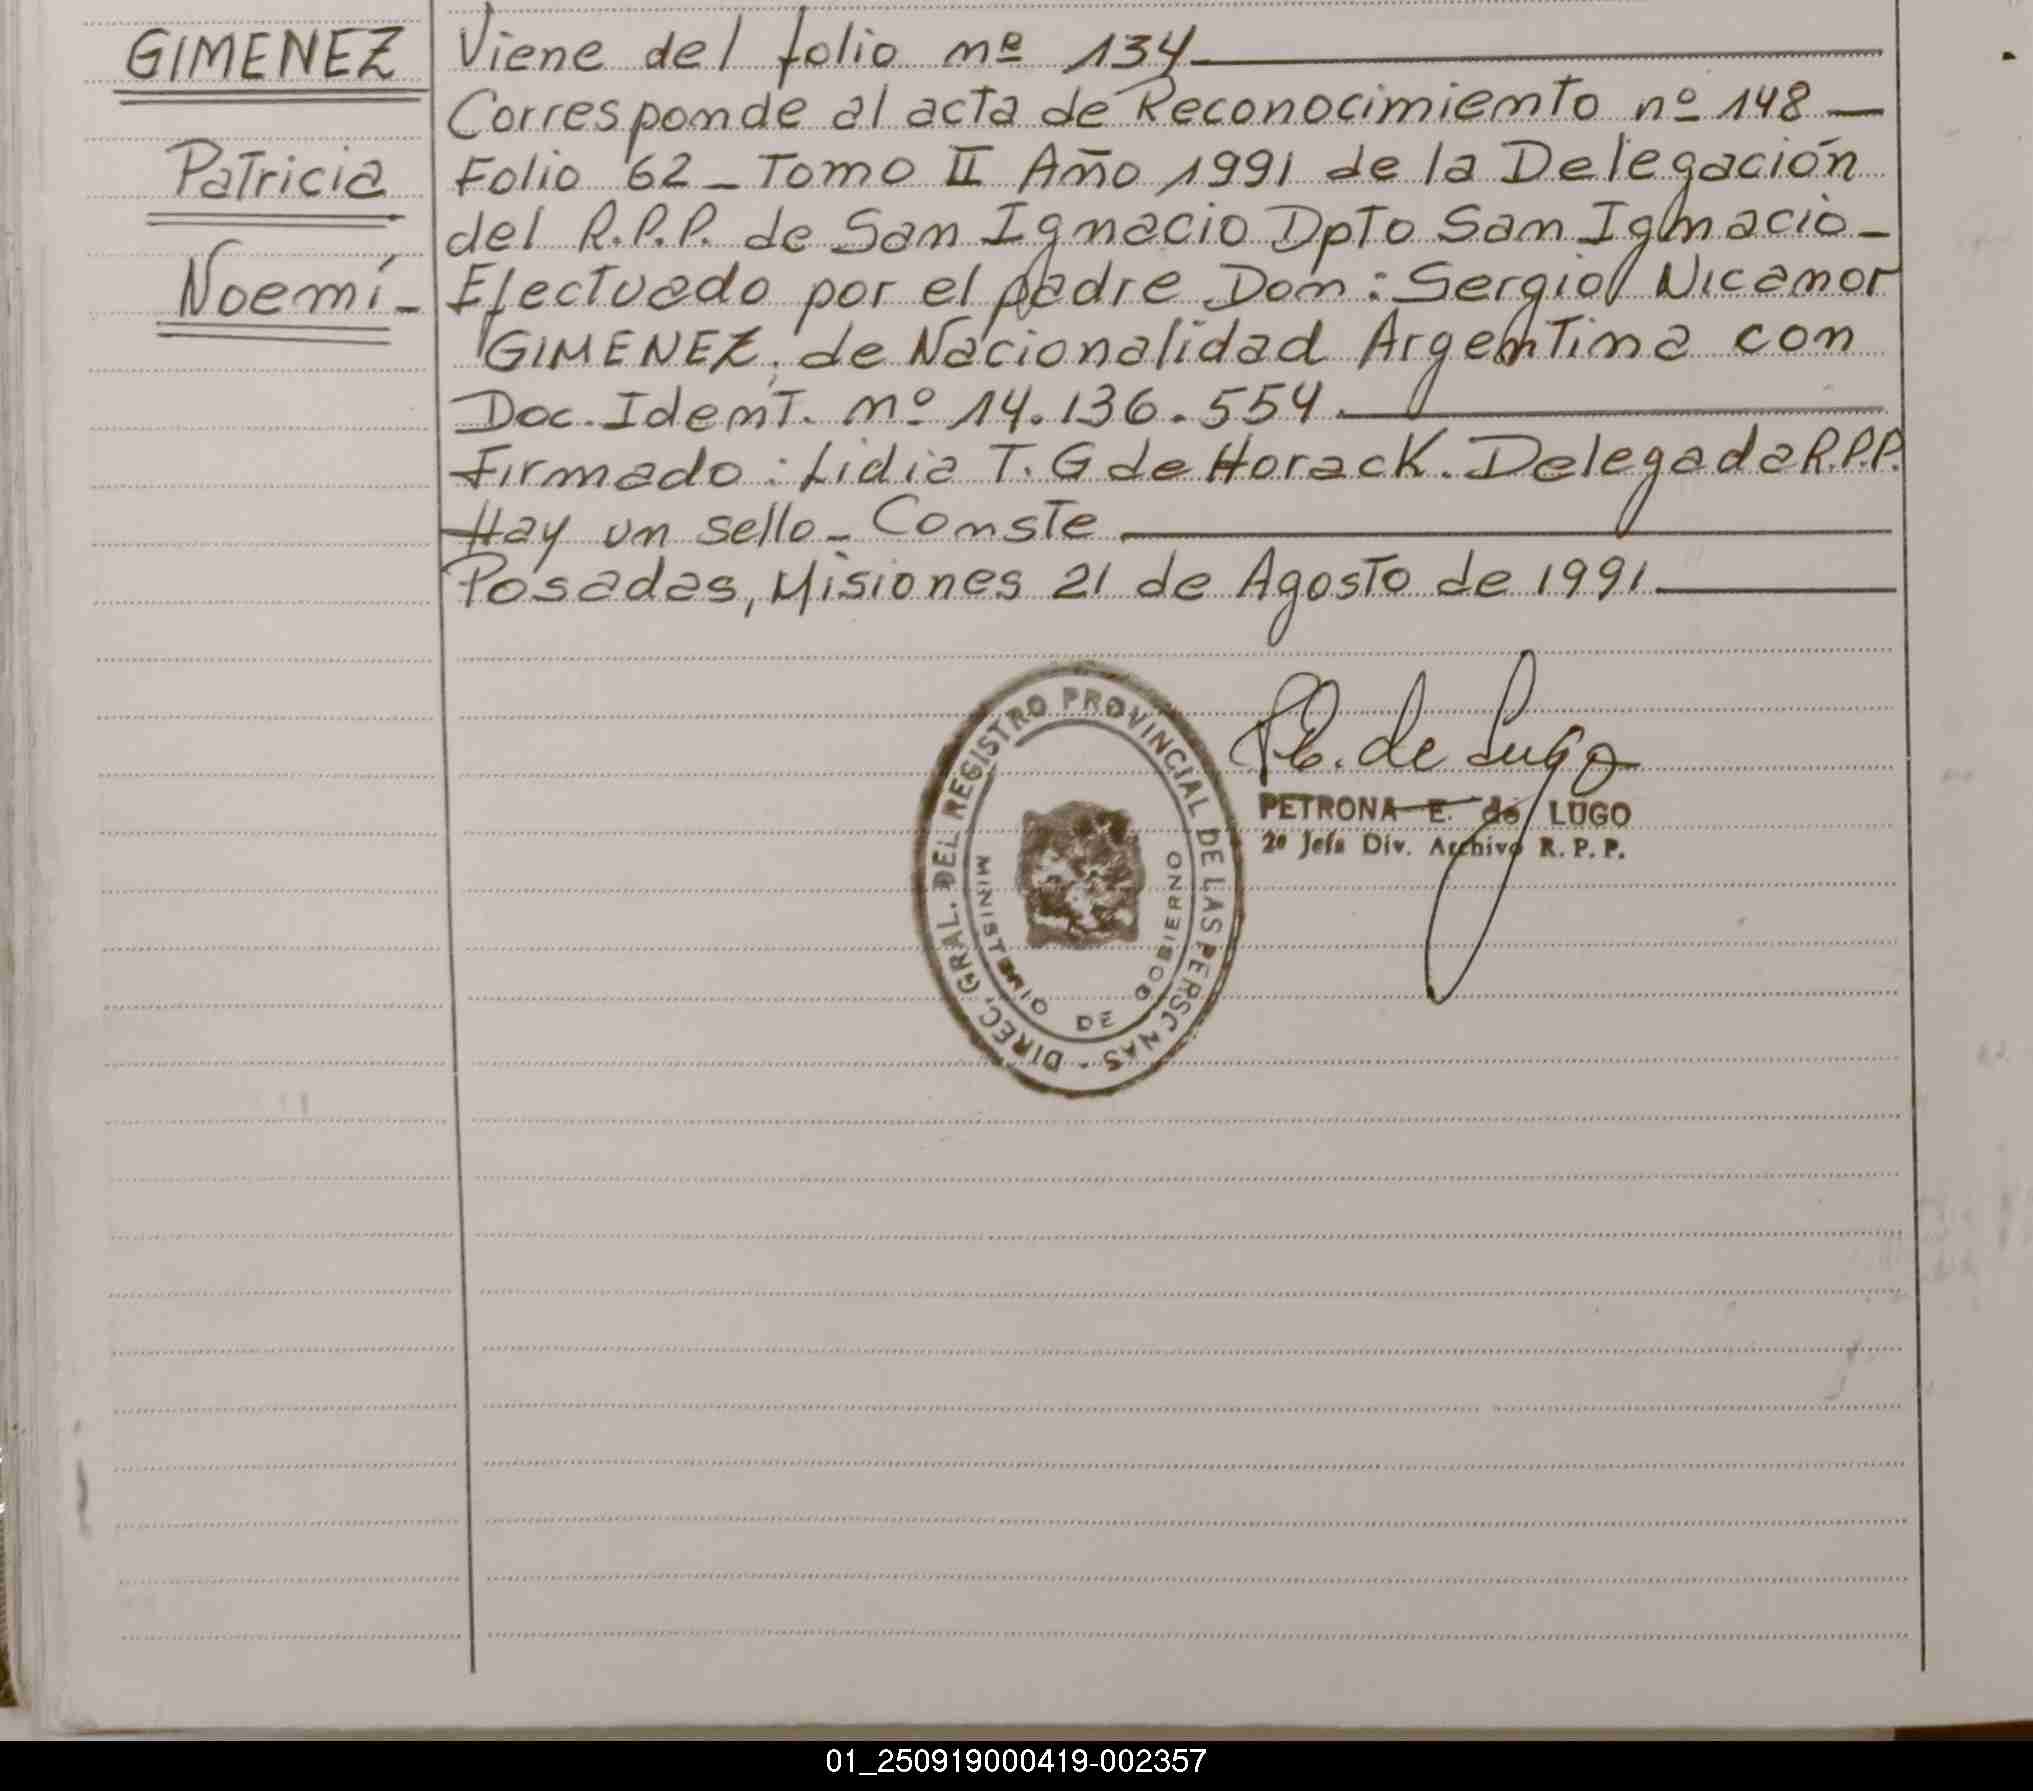 GIMENEZ
Patricia
Noemí_
Viene del folio nº 134
Corresponde al acta de Reconocimiento nº 148_
Folio 62_Tomo II Año 1991 de la Delegación
del R.P.P. de San Ignacio Dpto San Ignacio_
Efectuado por el padre Don: Sergio Nicanor
GIMENEZ, de Nacionalidad Argentina con
Doc. Ident. nº 14.136.554.
Firmado: Lidia T. G de Horack. Delegada R.P.P.
Hay un sello_ Conste
Posadas, Misiones 21 de Agosto de 1991.
DIREC. GRAL. DEL REGISTRO PROVINCIAL DE LAS PERSONAS -
MINISTERIO DE GOBIERNO
de Lugo
PETRONA E. de LUGO
2º Jefa Div. Archivo R. P. P.
01_250919000419-002357